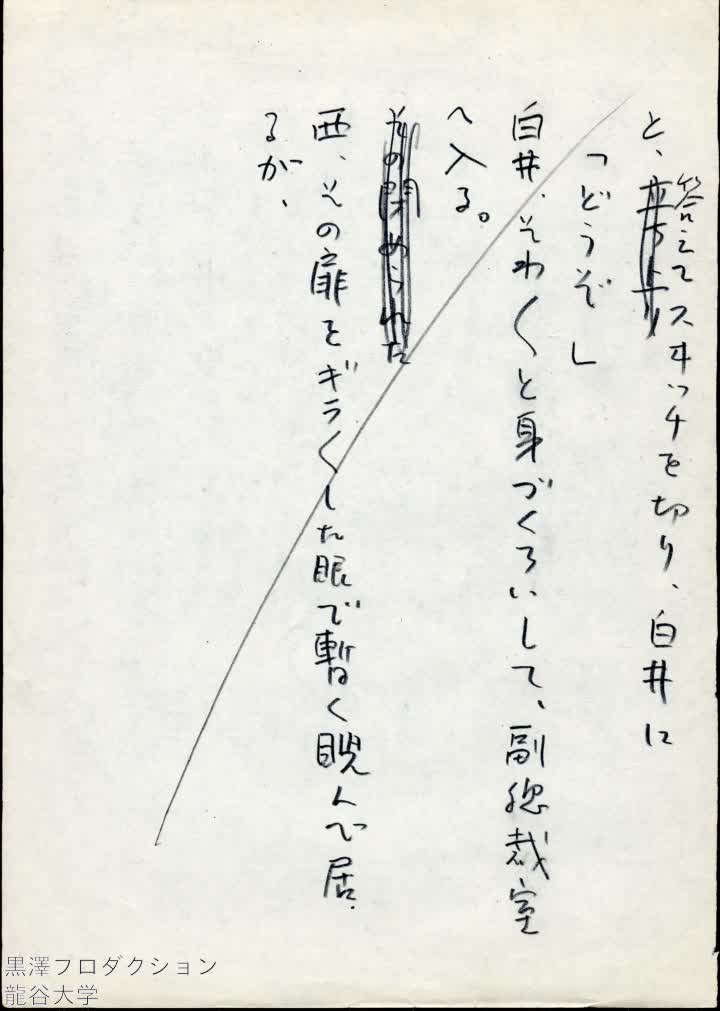 と、答えてスヰッチを切り、白井に
「どうぞ」
白井、そわ〱と身づくろいして、副総裁室
へ入る。
その閉められた
西、その扉をギラ〱した眼で暫く睨んで居
るが、
黒澤プロダクション
龍谷大学